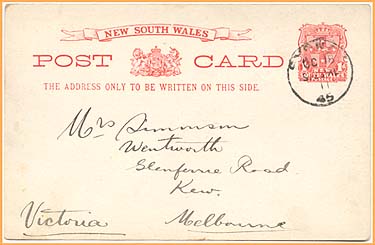 NEW SOUTH WALES
POST CARD
THE ADDRESS ONLY TO BE WRITTEN ON THIS SIDE.
Mrs Simmson
Wentworth
Glenferrie Road
Kew.
Victoria Melbourne
45